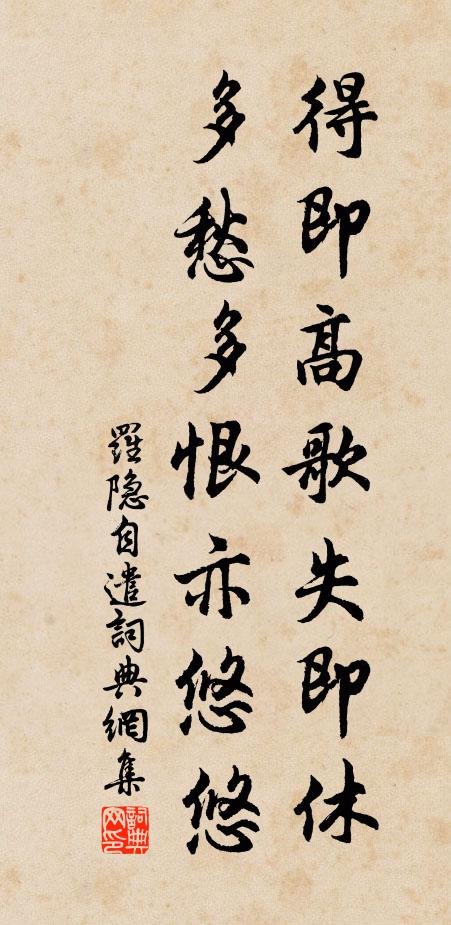 得即高歌失即休
多愁多恨亦悠悠
羅隐自遣詞典網集
詞典网印